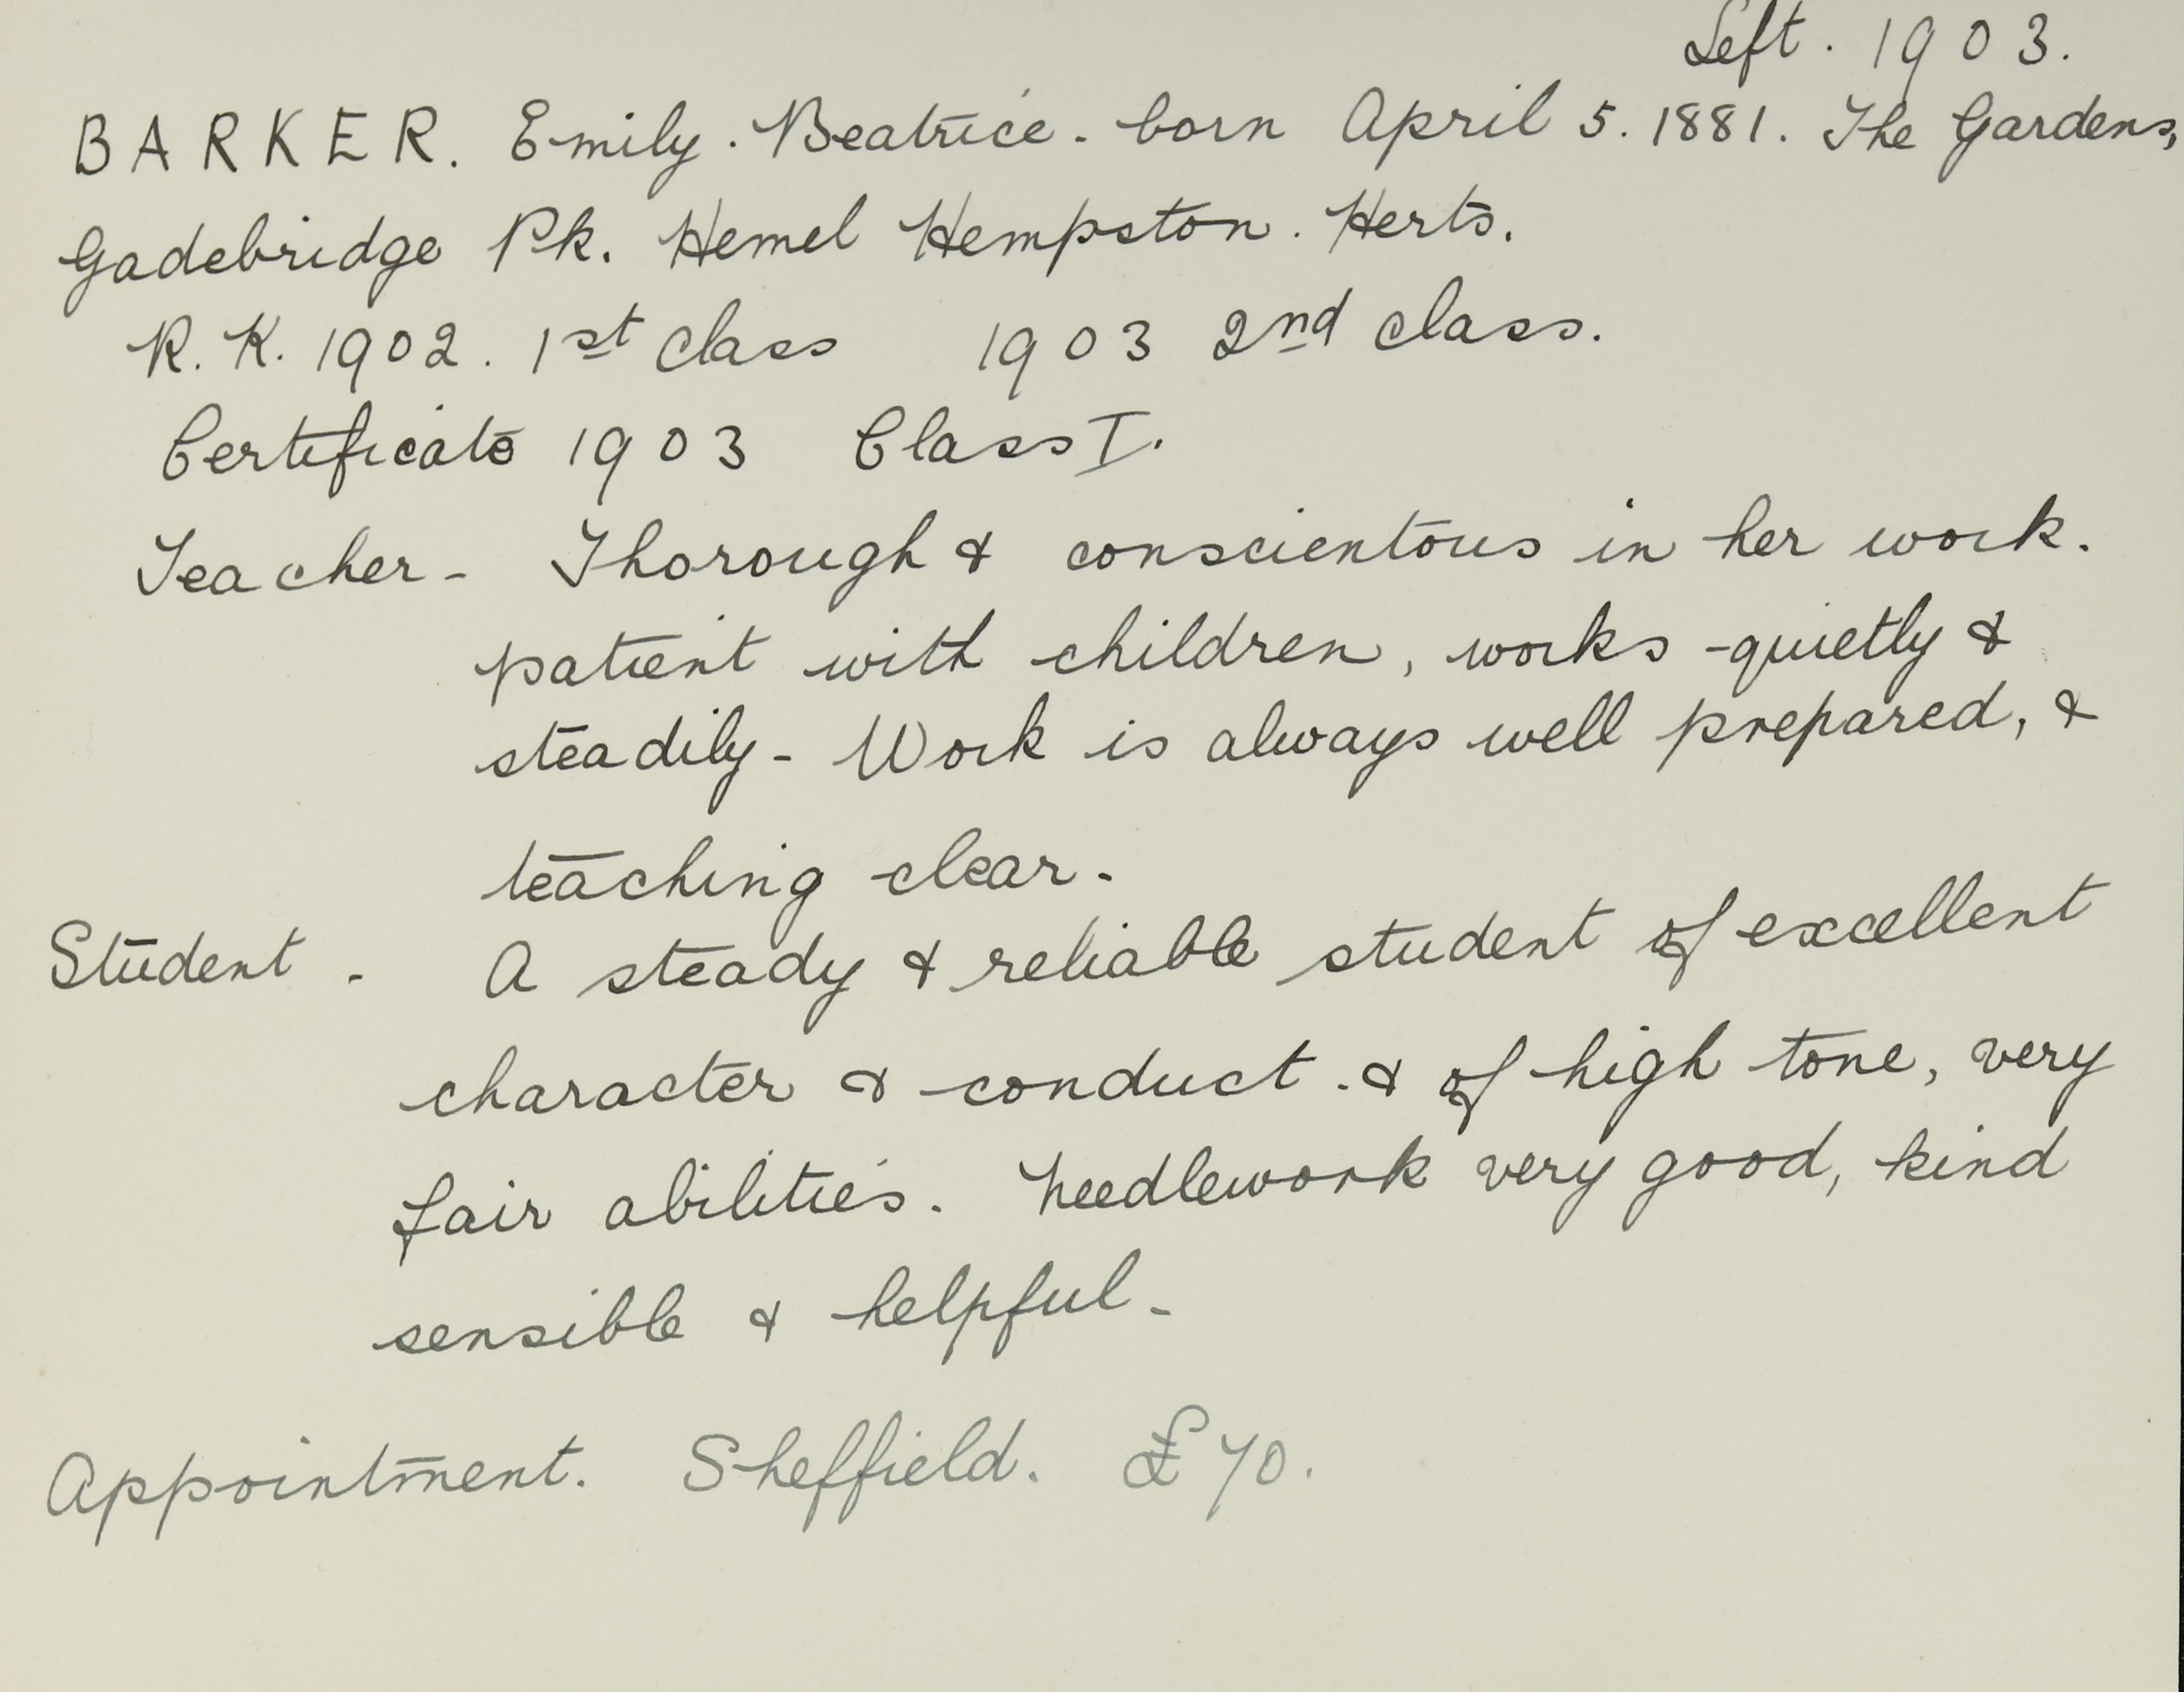 Left. 1903.
BARKER. Emily. Beatrice. born April 5. 1881. The Gardens,
Gadebridge Pk. Hemel Hempston. Herts.
R. K. 1902. 1st class 1903 2nd class.
Certificate 1903 Class I.
Teacher - Thorough & conscientous in her work.
patient with children, works quietly &
steadily - Work is always well prepared, &
teaching clear.
Student - A steady & reliable student of excellent
character & conduct. & of high tone, very
fair abilities. Needlework very good, kind
sensible & helpful -
Appointment. Sheffield. £70.